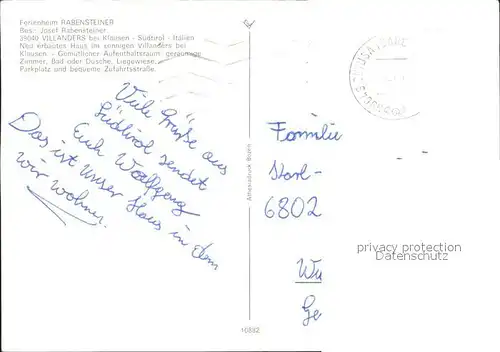 Ferienheim RABENSTEINER
Bes.: Josef Rabensteiner
39040 VILLANDERS bei Klausen - Südtirol - Italien
Neu erbautes Haus im sonnigen Villanders bei
Klausen - Gemütlicher Aufenthaltsraum, geräumige
Zimmer, Bad oder Dusche, Liegewiese,
Parkplatz und bequeme Zufahrtsstraße.
Viele Grüße aus
Südtirol sendet
Euch Wolfgang
Das ist unser Haus in dem
wir wohnen.
Athesiadruck Brixen
10882
Familie
Karl-
6802
Wu
Ge
privacy protection
Datenschutz